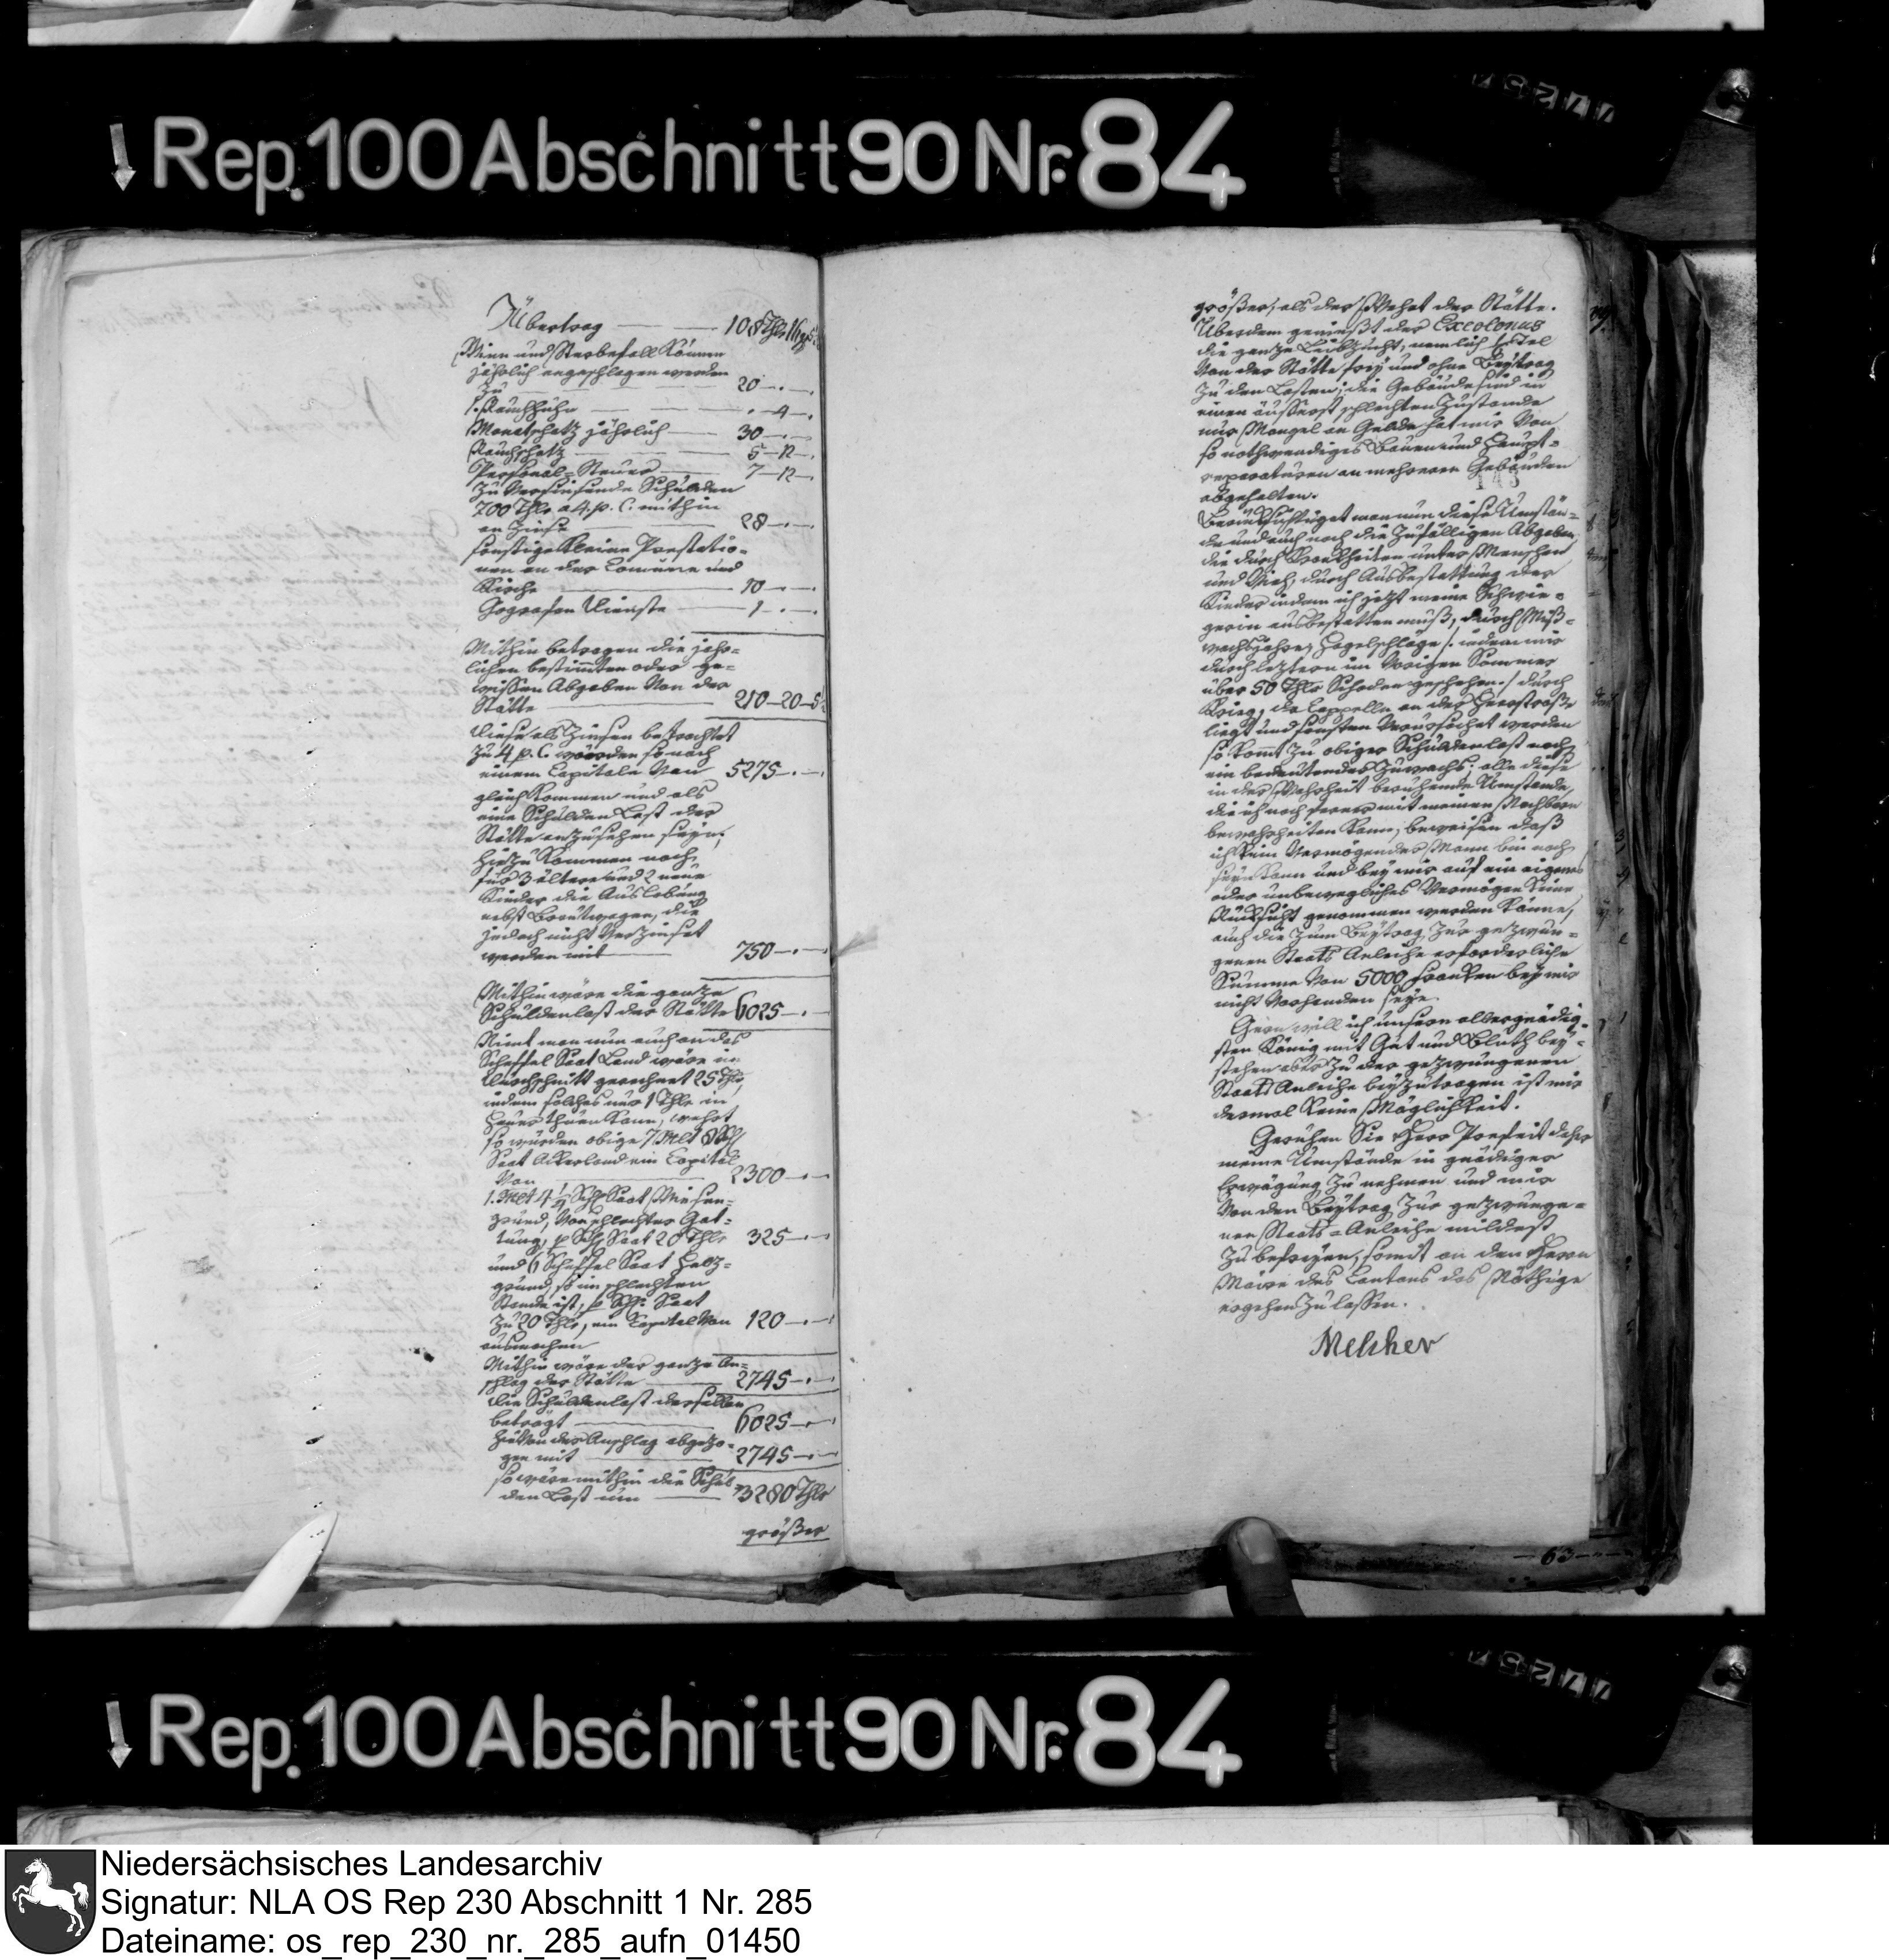 Rep. 100 Abschnitt 90 Nr. 84
Übertrag — 108 Thlr 16 gr 5
Winn und Sterbefall können
jährlich angeschlagen werden
zu — 20 — . — .
1. Rauchhuhn — . — 4 — .
Monatschatz jährlich — 30 — . — .
Rauchschatz — 5 — 12 — .
Personal-Steuer — 7 — 12 — .
Zu verzinsende Schulden
700 Thlr a 4. p. C. mithin
an Zinse — 28 — . — .
sonstige kleine Prestatio-
nen an der Comune und
Kirche — 10 — . — .
Gografen Dienste — 1 — . — .
Mithin betragen die jähr-
lichen bestimten oder ge-
wissen Abgaben von der
Stätte — 210 — 20 — 5
Diese als Zinsen betrachtet
zu 4 p. C. würden sonach
einem Capitale von 5275 — . —
gleich kommen und als
eine Schulden Last der
Stätte anzusehen seyn;
hiezu kommen noch
für 3 ältere und 2 neue
Kinder die Auslobung
nebst Brautwagen, die
jedoch nicht verzinset
werden mit — 750 — . —
Mithin wäre die ganze
Schuldenlast der Stätte 6025 — . —
Nimt man nun auch an das
Scheffel Saat Land wäre im
Durchschnitt gerechnet 25 Thlr,
indem solches nur 1 Thlr in
Heuer thuen kann, wehrt
so würden obige 7 Mlt 8 Schf
Saat Ackerland ein Capital
von — 2300 — . —
1. Mlt 4 1/4 Schf Saat Wiesen-
grund, von schlechter Gat-
tung, p Schf Saat 20 Thlr 325 — . —
und 6 Scheffel Saat Holtz-
grund, so im schlechten
Stande ist, p Schf. Saat
zu 20 Thlr, ein Capital von 120 — . —
ausmachen
Mithin wäre der ganze An-
schlag der Stätte — 2745 — . —
Die Schuldenlast derselben
beträgt — 6025 — . —
Hievon der Anschlag abgezo-
gen mit — 2745 — . —
so wäre mithin die Schul-
den Last um — 3280 Thlr
größer
größer, als der Wehrt der Stätte.
Überdem genießt der Excolonus
die ganze Leibzucht, nemlich
von der Stätte frey und ohne Beytrag
zu den Lasten; die Gebäude sind in
einen äusserst schlechten Zustande
nur Mangel an Gelde hat mir von
so nothwendiges Bauen und Haupt-
reparaturen an mehreren Gebäuden
abgehalten.
Berücksichtiget man nun diese Umstän-
de und auch noch die zufälligen Abgaben,
die durch Krankheiten unter Menschen
und Vieh, durch Ausbestattung der
Kinder indem ich jetzt meine Schwie-
gerin ausbestatten muß, durch Miß-
wachsjahre, Hagelschläge /: indem mir
durch leztern im vorigen Sommer
über 50 Thlr Schaden geschehen :/ durch
Krieg, da Cappeln an der Heerstraße
liegt und sonsten verursachet werden
so komt zu obiger Schuldenlast noch
ein bedeutender Zuwachs; alle diese
in der Wahrheit beruhende Umstände,
die ich noch ferner mit meinen Nachbarn
bewahrheiten kann, beweisen daß
ich kein vermögender Mann bin noch
seyn kann und bey mir auf ein eigenes
oder unbewegliches Vermögen keine
Rücksicht genommen werden könne,
auch die zum Beytrag zur gezwun-
genen Staats Anleihe erforderliche
Summe von 5000 Franken bey mir
nicht vorhanden seye.
Gern will ich unsern allergnädig-
sten König mit Gut und Bluth bey-
stehen aber zu der gezwungenen
Staats Anleihe beyzutragen ist mir
dermal keine Möglichkeit.
Geruhen Sie Herr Prefeit daher
meine Umstände in gnädiger
Erwägung zu nehmen und mir
von den Beytrag zur gezwunge-
nen Staats-Anleihe mildest
zu befreyen, somit an den Herrn
Maire des Cantons das Nöthige
ergehen zu lassen.
Melcher
63
Rep. 100 Abschnitt 90 Nr. 84
Niedersächsisches Landesarchiv
Signatur: NLA OS Rep 230 Abschnitt 1 Nr. 285
Dateiname: os_rep_230_nr._285_aufn_01450